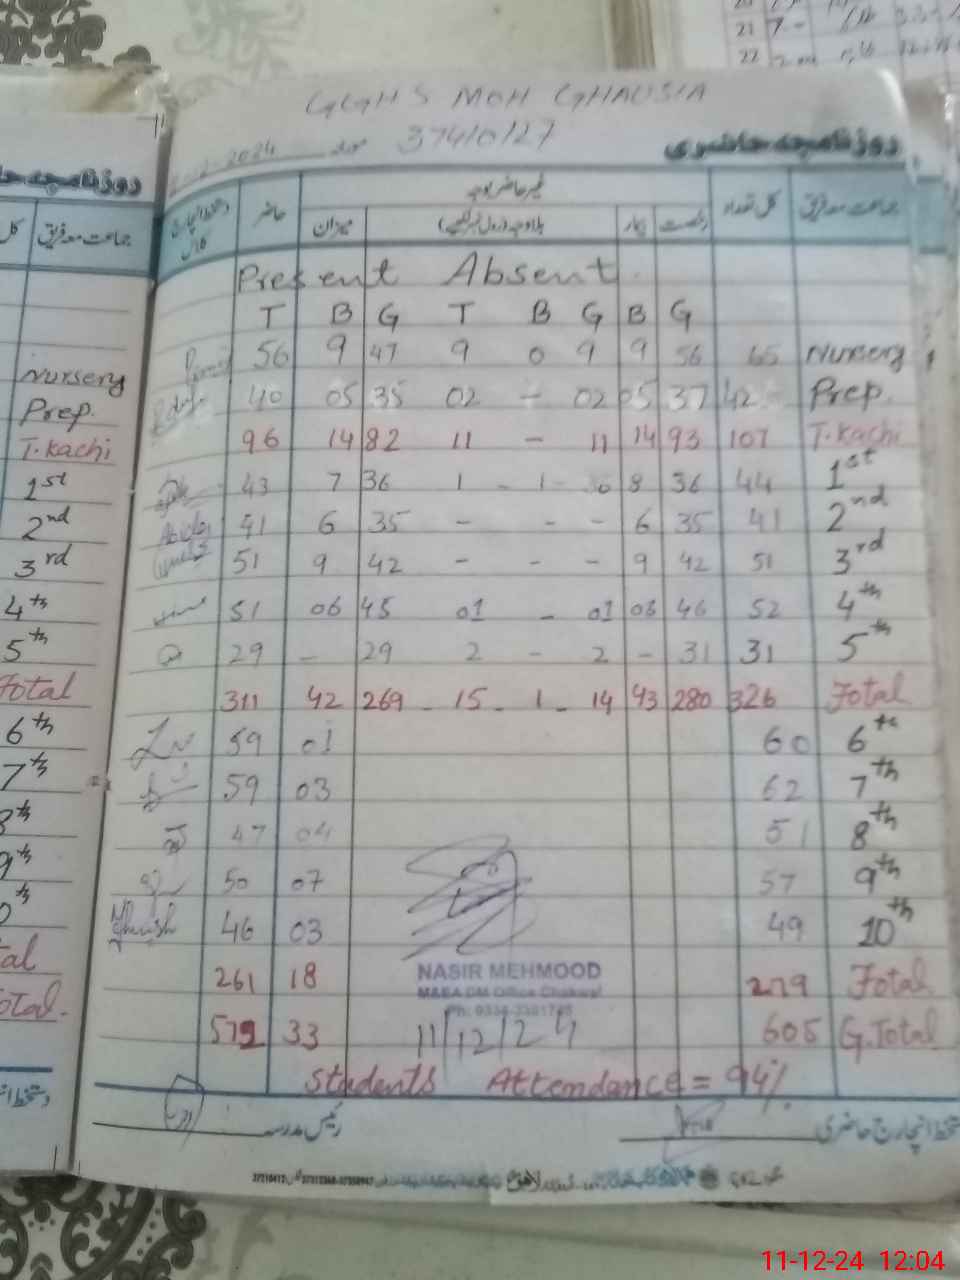 21 7
22
GGHS MOH GHAUSIA
2024 مورخہ 37410127
روزنامچہ حاضری
غیر حاضر بوجہ
جماعت معہ فریق کل تعداد رخصت بیمار بلاوجہ (رول نمبر لکھیے) میزان حاضر دستخط انچارج کلاس
Present Absent
T B G T B G B G
56 9 47 9 0 9 9 56 65 Nursery
40 05 35 02 - 02 05 37 42 Prep.
96 14 82 11 - 11 14 93 107 T.kachi
43 7 36 1 - 1 - 0 8 36 44 1st
41 6 35 - - - 6 35 41 2nd
51 9 42 - - - 9 42 51 3rd
51 06 45 01 - 01 06 46 52 4th
29 - 29 2 - 2 - 31 31 5th
311 42 269 - 15 - 1 - 14 43 280 326 Total
59 01 60 6th
59 03 62 7th
47 04 51 8th
50 07 57 9th
46 03 49 10th
261 18 279 Total
572 33 605 G.Total
NASIR MEHMOOD
M&EA DM Office Chakwal
11/12/24
Students Attendance = 94%
دستخط انچارج حاضری رئیس مدرسہ
روزنامچہ
جماعت معہ فریق
Nursery
Prep.
T.kachi
1st
2nd
3rd
4th
5th
Total
6th
7th
8th
9th
11-12-24 12:04